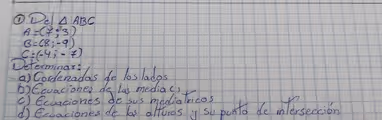 ① Del △ ABC
A=(7;3)
B=(8;-9)
C=(-4;-7)
Determinar:
a) Coordenadas de los lados
b) Ecuaciones de las medias
c) Ecuaciones de sus mediatrices
d) Ecuaciones de las alturas y su punto de intersección